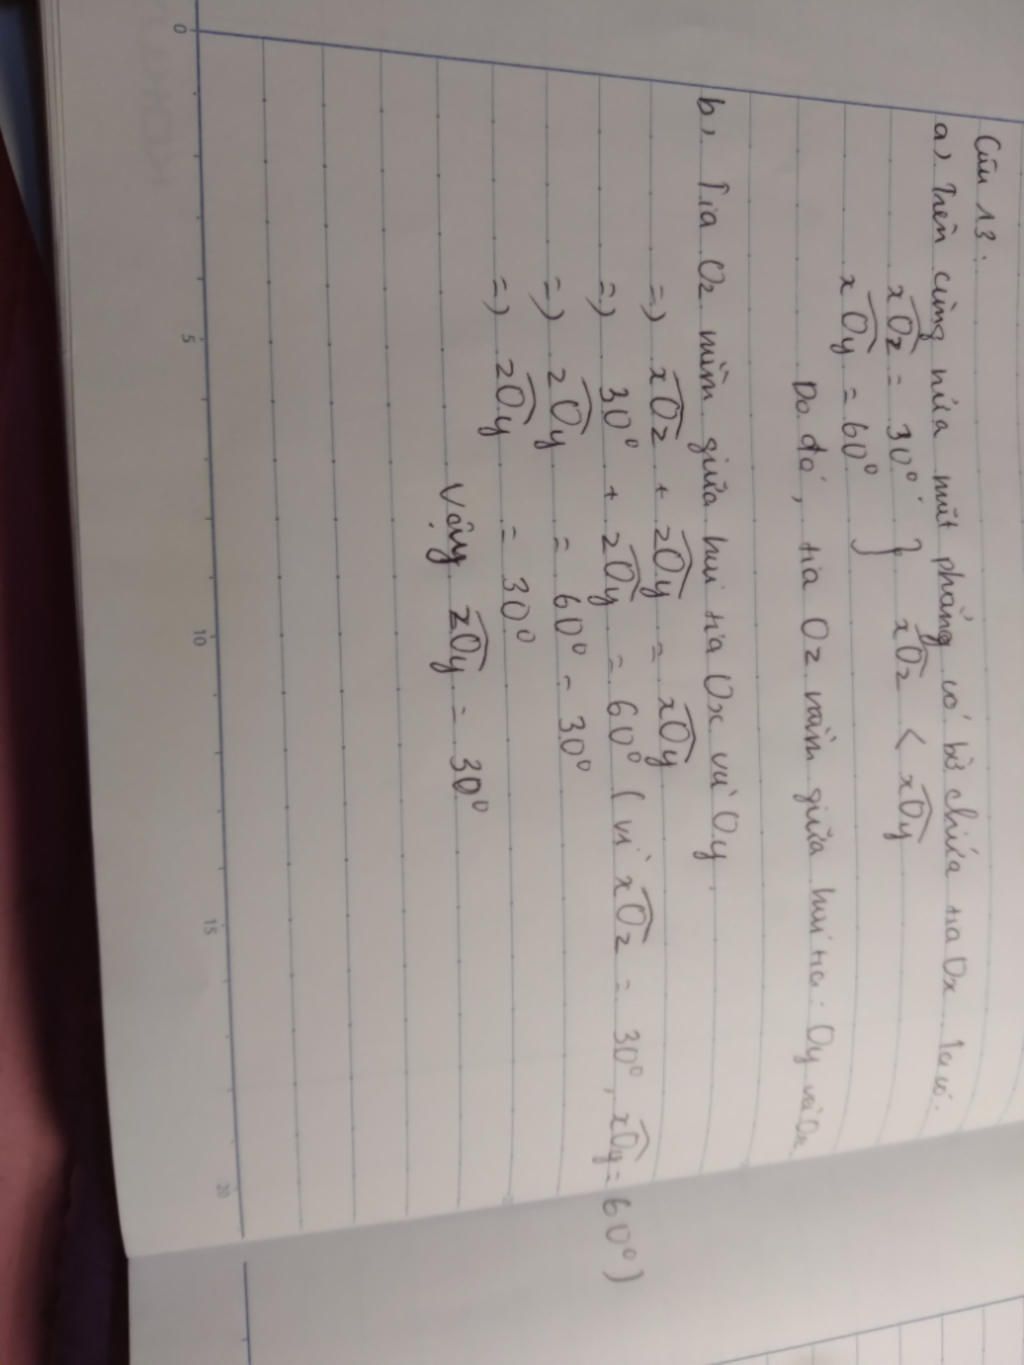 Câu 13.
a) Trên cùng nửa mặt phẳng có bờ chứa tia Ox ta có.
xOz = 30° } xOz < xOy
xOy = 60°
Do đó, tia Oz nằm giữa hai tia Oy và Ox
b, Tia Oz nằm giữa hai tia Ox và Oy.
=) xOz + zOy = xOy
=) 30° + zOy = 60° (vì xOz = 30°, xOy = 60°)
=) zOy = 60° - 30°
=) zOy = 30°
Vậy zOy = 30°
0 5 10 15 20